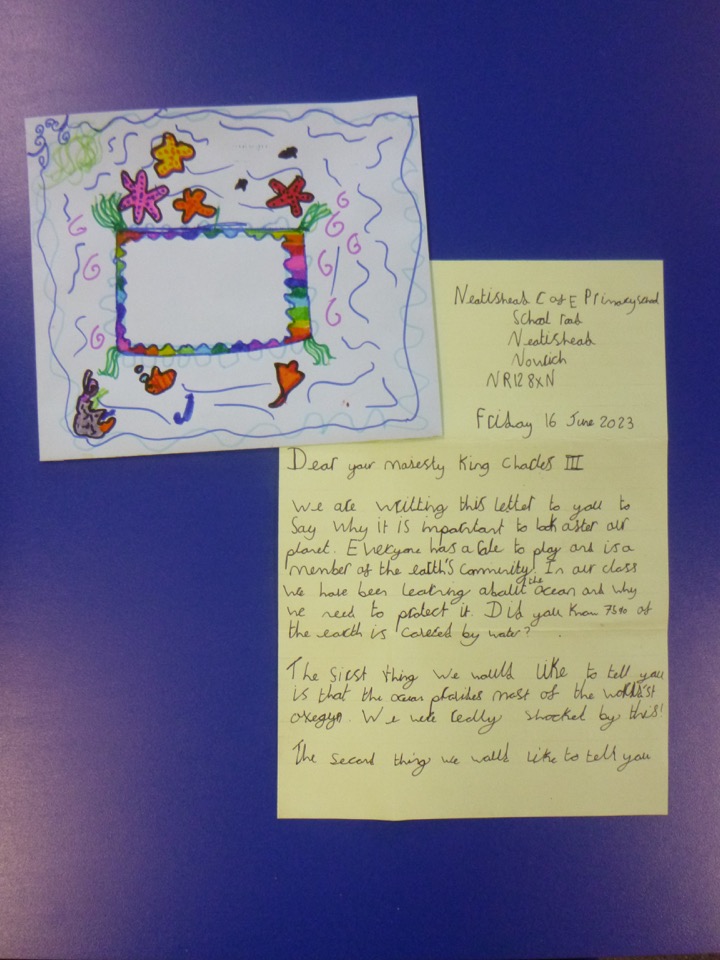 Neatishead C of E Primary school
School road
Neatishead
Norwich
NR12 8XN
Friday 16 June 2023
Dear your maresty King Charles III
We are writting this letter to you to
Say why it is important to look aster our
planet. Everyone has a role to play and is a
member of the earth's community. In our class
we have been learning about the ocean and why
we need to protect it. Did you know 75% of
the earth is covered by water?
The first thing we would like to tell you
is that the ocean provides most of the world'st
oxegyn. We were really shocked by this!
The second thing we would like to tell you